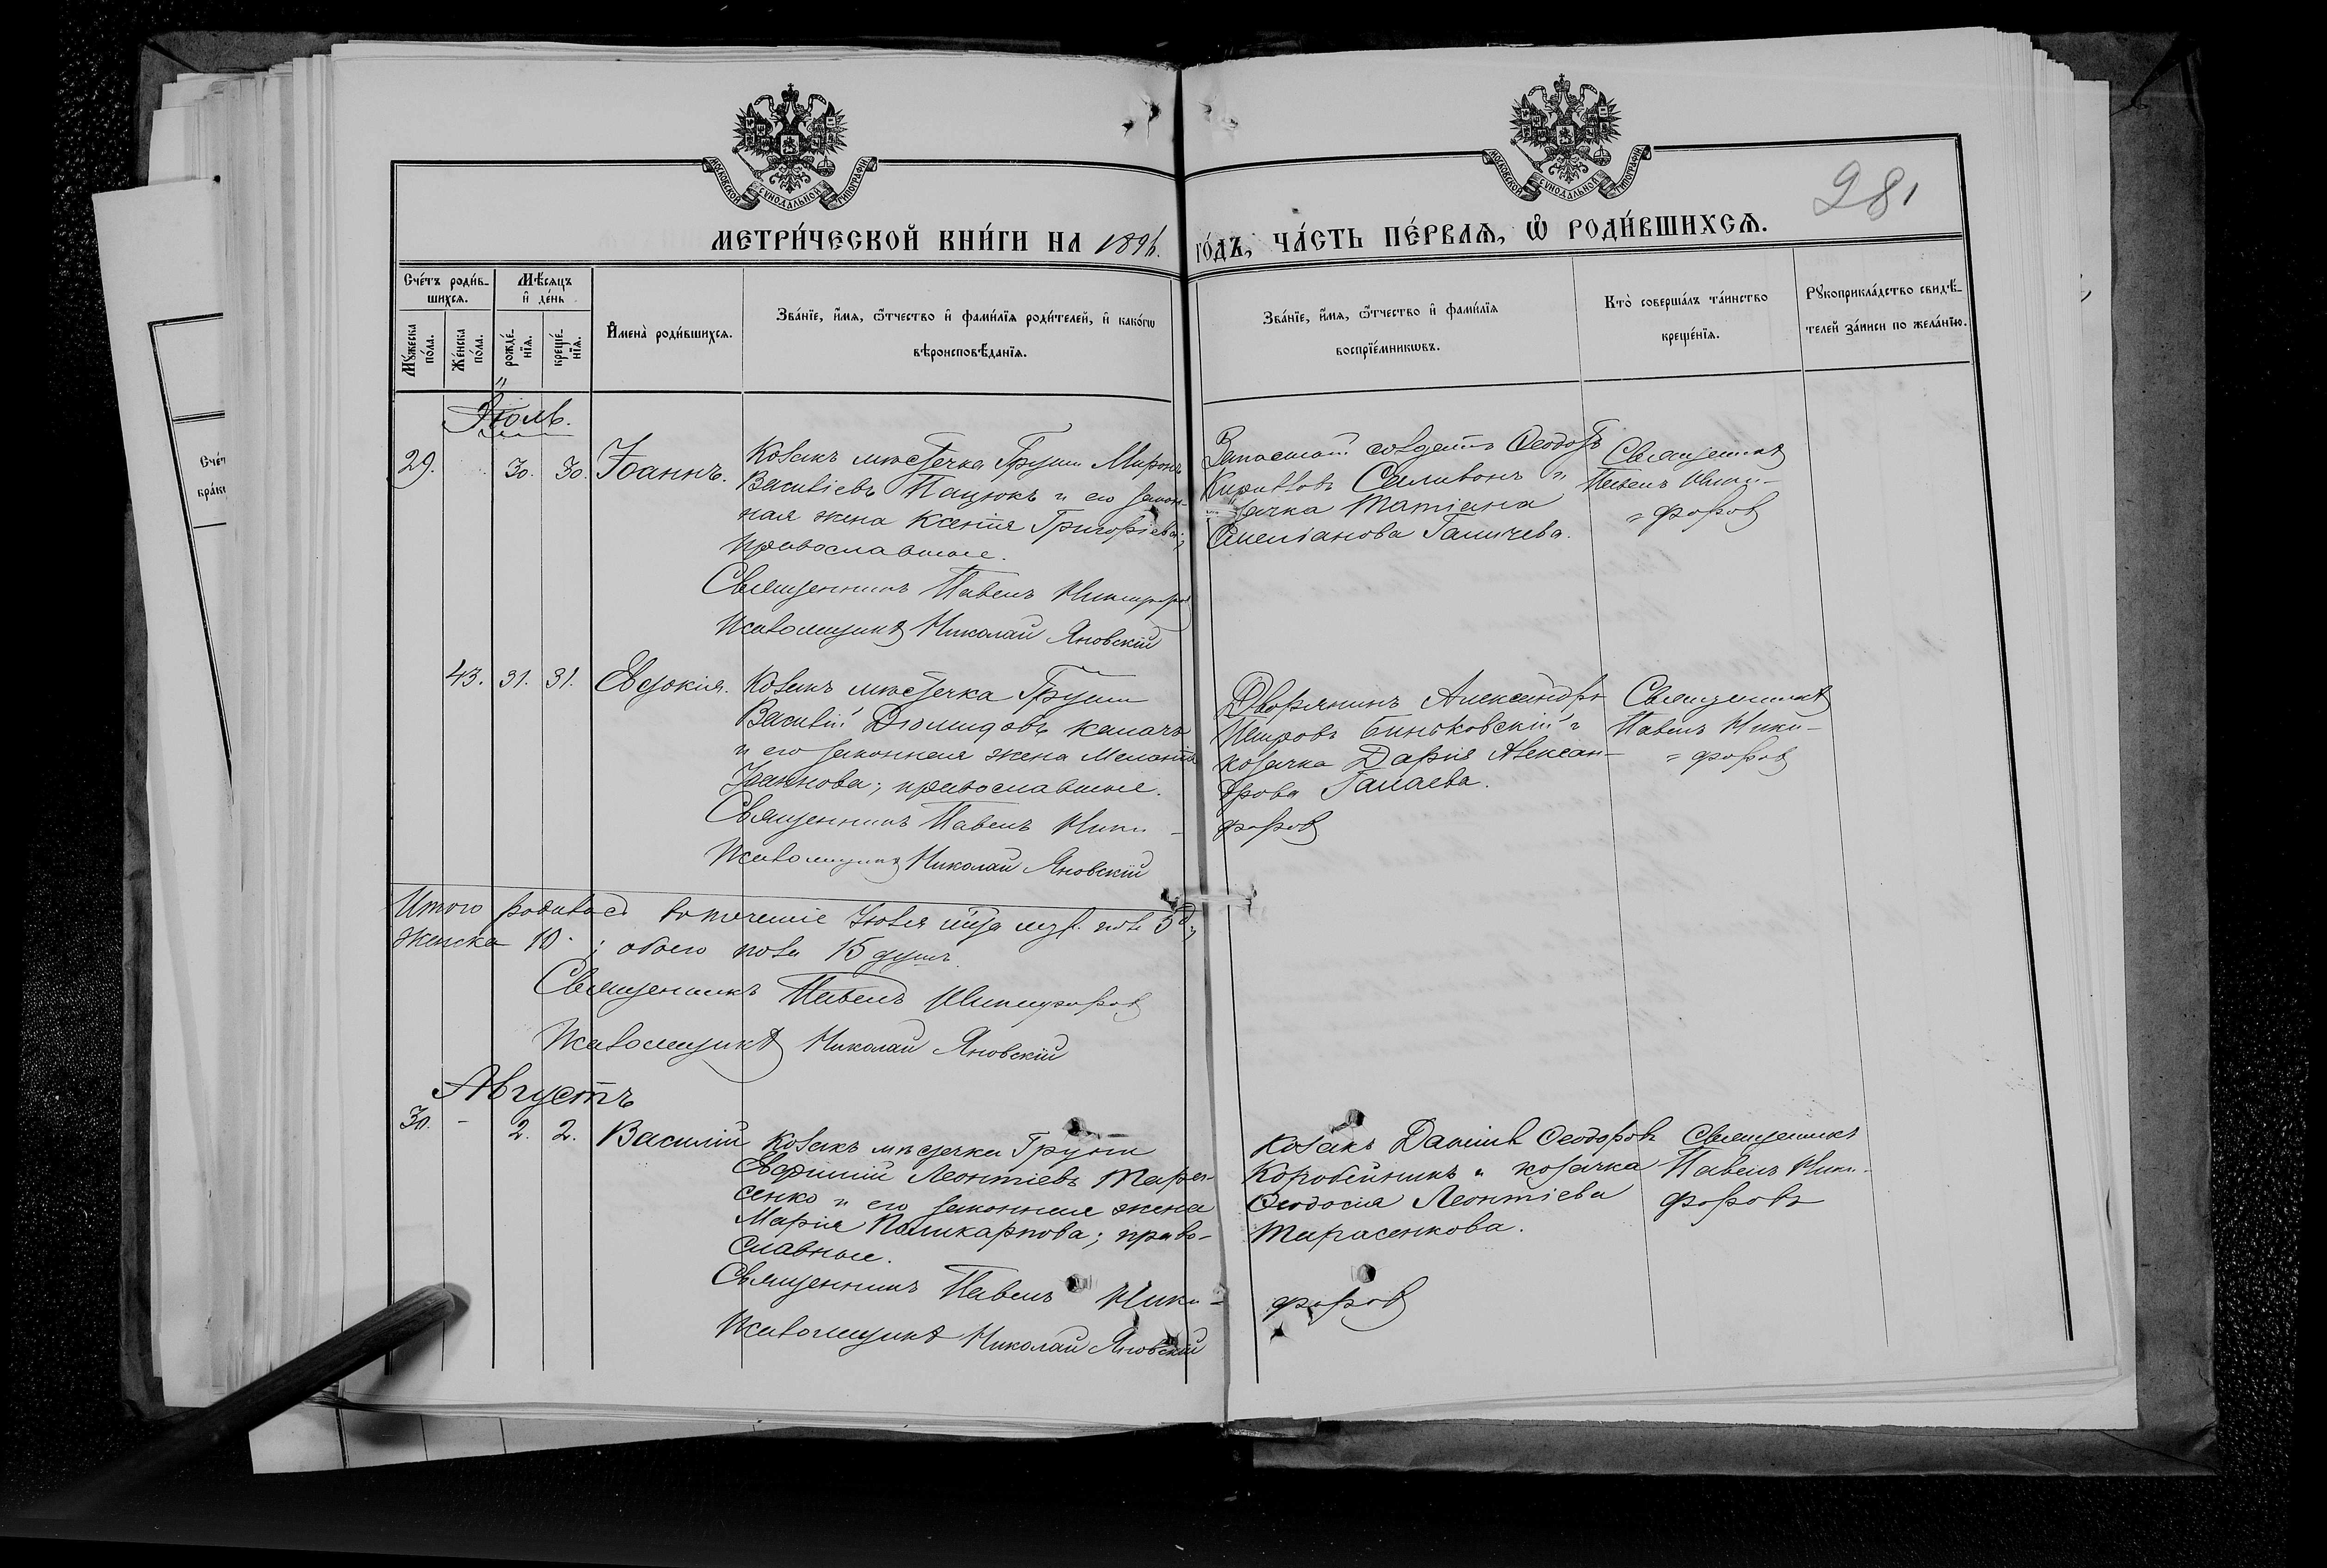 МОСКОВСКОЙ СУНОДАЛЬНОЙ ТИПОГРАФІИ
МОСКОВСКОЙ СУНОДАЛЬНОЙ ТИПОГРАФІИ
281
МЕТРИ́ЧЕСКОЙ КНИ́ГИ НА 189
го́дъ, ЧА́СТЬ ПЕ́РВАѦ, Ѡ РОДИ́ВШИХСѦ.
Сче́тъ роди́в-
шихсѧ.
Мѣ́сяцъ
и҆ де́нь
Мꙋ́жеска
по́ла.
Же́нска
по́ла.
рожде́-
нїѧ.
креще́-
нїѧ.
И҆мена̀ роди́вшихсѧ.
Зва́нїе, и҆́мѧ, ѻ҆́тчество и҆ фами́лїѧ роди́телей, и҆ како́гѡ
вѣроисповѣ́данїѧ.
Зва́нїе, и҆́мѧ, ѻ҆́тчество и҆ фами́лїѧ
воспрїе́мникѡвъ.
Кто̀ соверша́лъ та́инство
креще́нїѧ.
Рꙋкоприкла́дство свидѣ́-
телей за́писи по жела́нїю.
Іюль.
29. 30. 30. Іоаннъ.
Козакъ мѣстечка Груни Миронъ
Василіевъ Пацюкъ и его закон-
ная жена Ксенія Григоріева;
православные.
Священникъ Павелъ Никифоровъ
Псаломщикъ Николай Яновскій
Запасный солдатъ Ѳеодоръ
Кирилловъ Селивонъ и
Татіана
Емеліанова Галичева.
Священникъ
Павелъ Ники-
=форовъ
43. 31. 31. Евдокія.
Козакъ мѣстечка Груни
Василій Діомидовъ Калачъ
и его законная жена Меланія
Іоаннова; православные.
Священникъ Павелъ Ники-
форовъ
Псаломщикъ Николай Яновскій
Дворянинъ Александръ
Петровъ Бинтковскій и
козачка Дарія Алексан-
дрова Галаева.
Священникъ
Павелъ Ники-
=форовъ
Итого родилось въ теченіе Іюля м-ца муж. пола 5
женска 10; обоего пола 15 душъ.
Священникъ Павелъ Никифоровъ
Псаломщикъ Николай Яновскій
Августъ
30. - 2. 2. Василій
Козакъ мѣстечка Груни
Евфимій Леонтіевъ Тара-
сенко и его законная жена
Марія Поликарпова; право-
славные.
Священникъ Павелъ Ники-
форовъ
Псаломщикъ Николай Яновскій
Козакъ Даніилъ Ѳеодоровъ
Коробейникъ и козачка
Ѳеодосія Леонтіева
Тарасенкова.
Священникъ
Павелъ Ники-
форовъ
Сче́т
бра́к